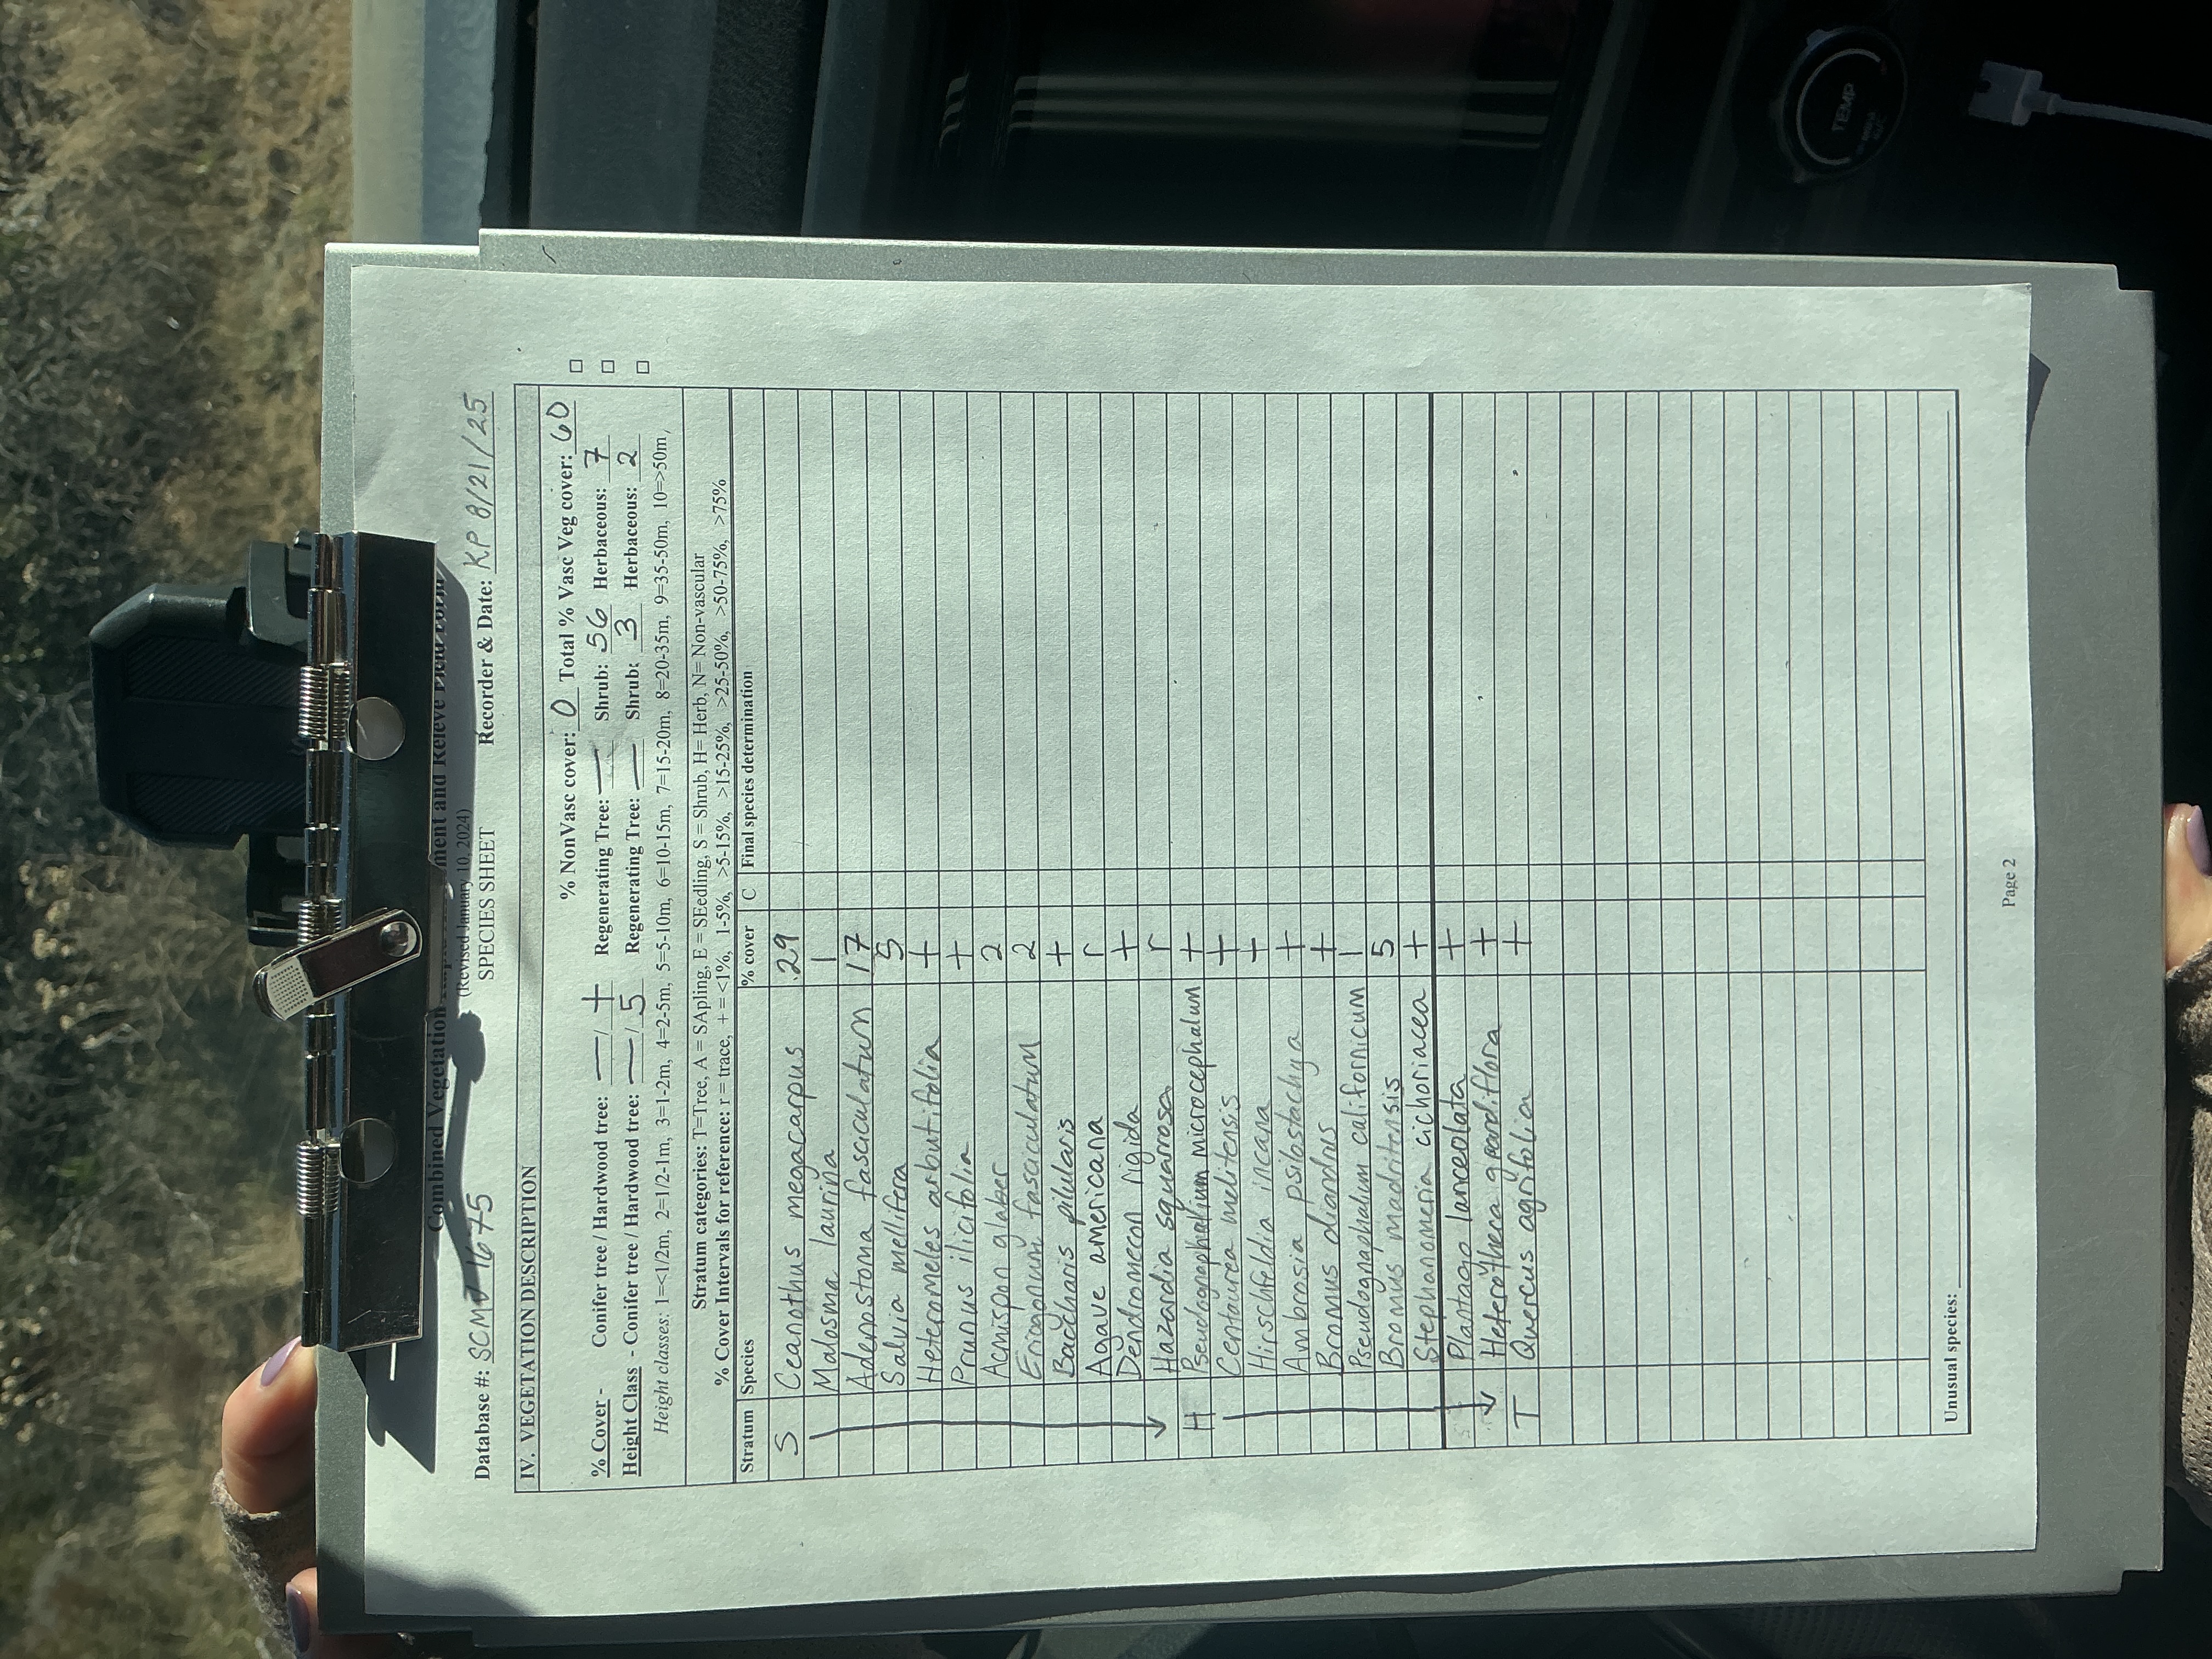 Combined Vegetation ment and Relevé Field Form
(Revised January 10, 2024)
SPECIES SHEET
Database #: SCMJ 1675 Recorder & Date: KP 8/21/25
IV. VEGETATION DESCRIPTION
% NonVasc cover: 0 Total % Vasc Veg cover: 60 □
% Cover - Conifer tree / Hardwood tree: — / + Regenerating Tree: — Shrub: 56 Herbaceous: 7 □
Height Class - Conifer tree / Hardwood tree: — / 5 Regenerating Tree: — Shrub: 3 Herbaceous: 2 □
Height classes: 1=<1/2m, 2=1/2-1m, 3=1-2m, 4=2-5m, 5=5-10m, 6=10-15m, 7=15-20m, 8=20-35m, 9=35-50m, 10=>50m,
Stratum categories: T=Tree, A = SApling, E = SEedling, S = Shrub, H= Herb, N= Non-vascular
% Cover Intervals for reference: r = trace, + = <1%, 1-5%, >5-15%, >15-25%, >25-50%, >50-75%, >75%
Stratum Species % cover C Final species determination
S Ceanothus megacarpus 29
Malosma laurina 1
Adenostoma fasciculatum 17
Salvia mellifera 5
Heteromeles arbutifolia +
Prunus ilicifolia +
Acmispon glaber 2
Eriogonum fasciculatum 2
Baccharis pilularis +
Agave americana r
Dendromecon rigida +
Hazardia squarrosa r
H Pseudognaphalium microcephalum +
Centaurea melitensis +
Hirschfeldia incana +
Ambrosia psilostachya +
Bromus diandrus +
Pseudognaphalium californicum 1
Bromus madritensis 5
Stephanomeria cichoriacea +
Plantago lanceolata +
Heterotheca grandiflora +
T Quercus agrifolia +
Unusual species:
Page 2
TEMP